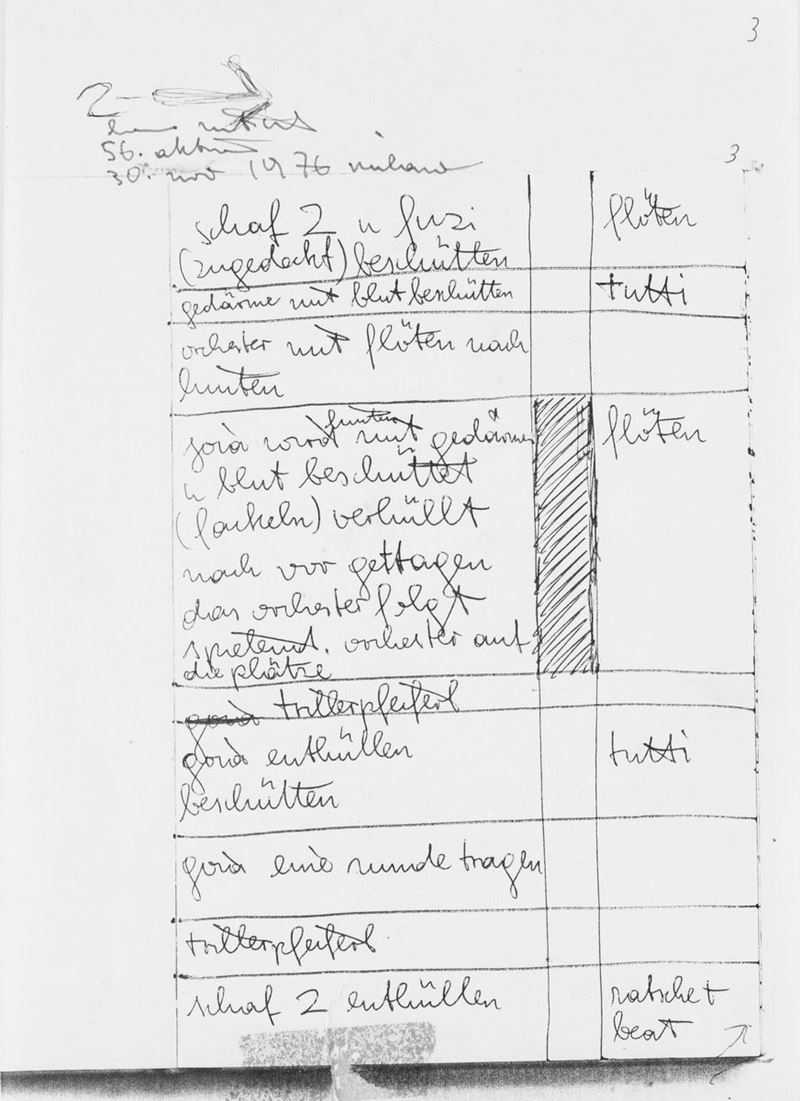 3
2
56. aktion
30. nov 1976
3
schaf 2 u fuzi flöten
(zugedeckt) beschütten
gedärme mit blut beschütten tutti
orchester mit flöten nach
hinten
wird mit gedärmen flöten
u blut beschüttet
(fackeln) verhüllt
nach vor gettagen
das orchester folgt
spielend. orchester auf
die plätze
trillerpfeiferl
goia enthüllen tutti
beschütten
goia eine runde tragen
trillerpfeiferl
schaf 2 enthüllen ratsche +
beat